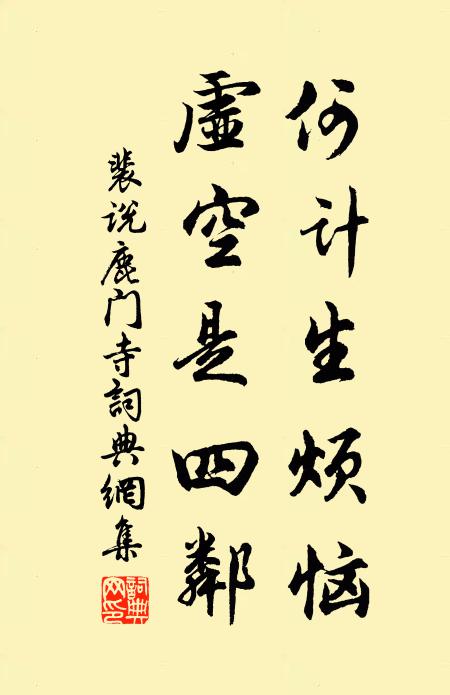 何计生烦恼
虚空是四鄰
裴说鹿门寺詞典網集
詞典网印